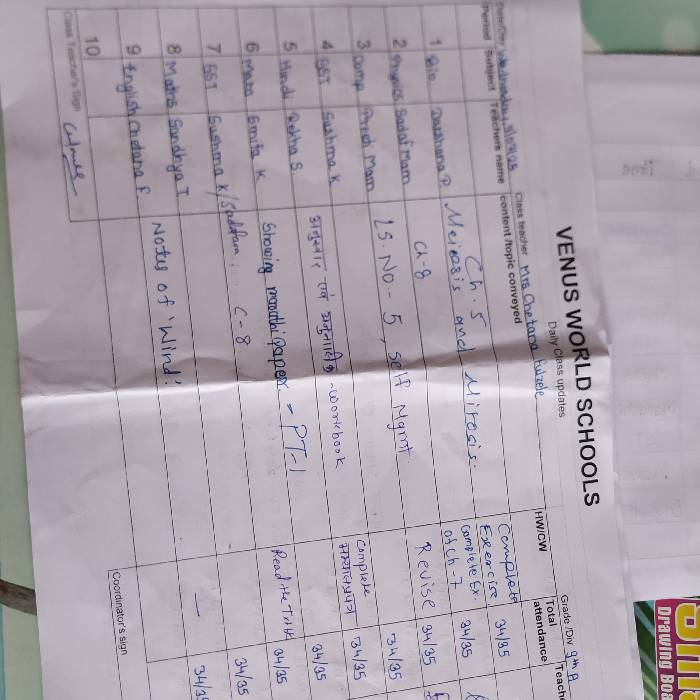 VENUS WORLD SCHOOLS
Daily Class updates
Class teacher Mrs Chetana Fulzele
Grade /Div 9th A
Period Subject Teachers name content /topic conveyed HW/CW Total attendance Teach
1 Bio Darshana P Ch. 5 Meiosis and Mitosis. Complete Exercise 34/35
2 Physics Sadaf Mam Ch-8 Complete Ex. of ch-7 34/35
3 Comp Preeti Mam LS. No - 5, Self Mgmt. Revise 34/35
4 SST Sushma K 34/35
5 Hindi Rekha S अनुस्वार एवं अनुनासिक - workbook Complete 34/35
6 Mara Smita K Showing marathi paper. - PT-1 34/35
7 SST Sushma K/ Sadafara C-8 Read the TxtBk 34/35
8 Maths Sandhya T 34/35
9 English Chetana F. Notes of 'Wind'. — 34/35
10
Class Teacher's Sign
Coordinator's sign
Drawing Boa